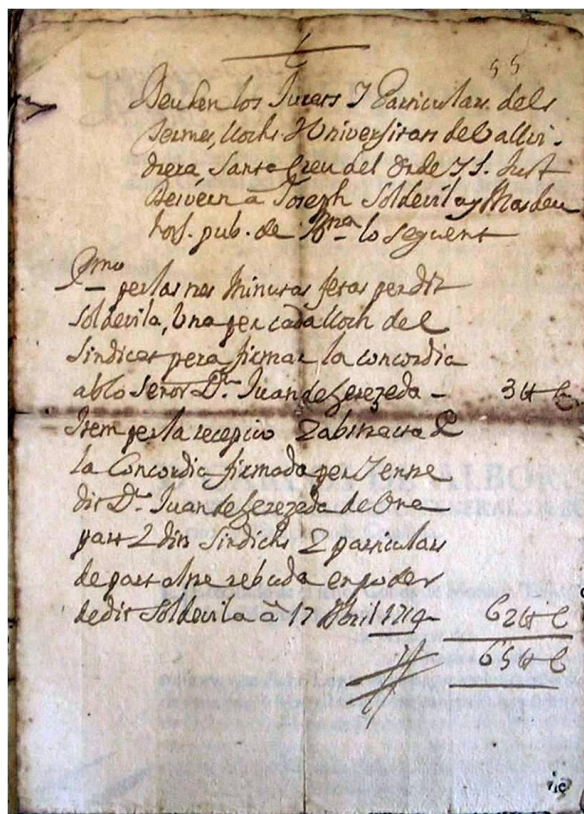 55
Deuhen los Jurats y Particulars dels
Termes, llochs y Universitats de Vallvi-
drera, Santa Creu del Orde y S. Just
Desvern â Joseph Soldevila y Masdeu
not. pub. de Bna lo seguent
Pmo
per las tres minutas fetas per dit
Soldevila, una per cada lloch del
Sindicat pera firmar la concordia
ab lo Señor Dn. Juan de Serezeda - 3 ₶
Item per la recepcio y abstracta de
la Concordia firmada per y entre
dit Dn. Juan de Serezeda de una
part y dits Sindichs y particulars
de part altre rebuda en poder
de dit Soldevila â 17 Abril 1719 62 ₶
65 ₶